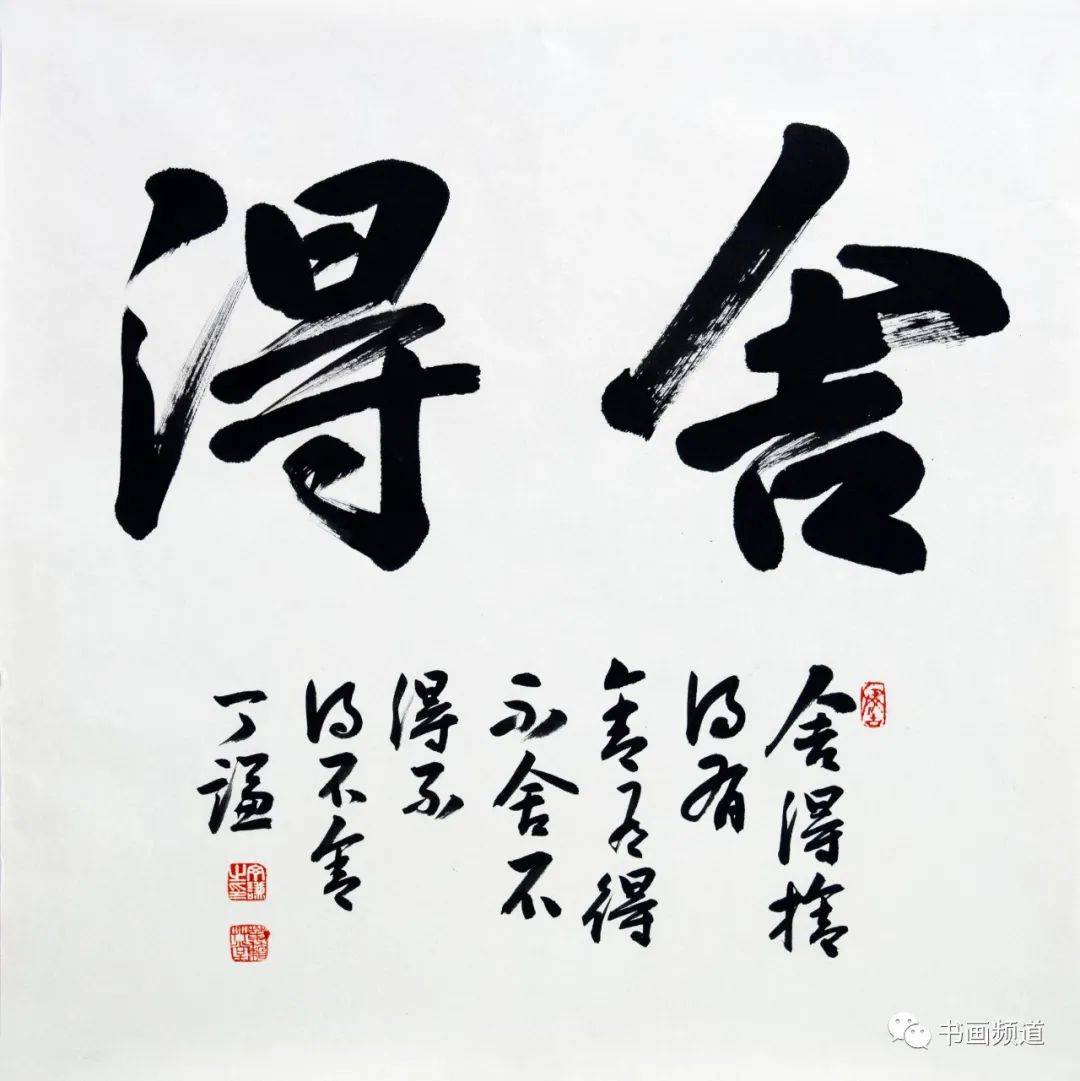 舍得
舍得捨
得有
舍有得
不舍不
得不
得不舍
丁谦
书画频道